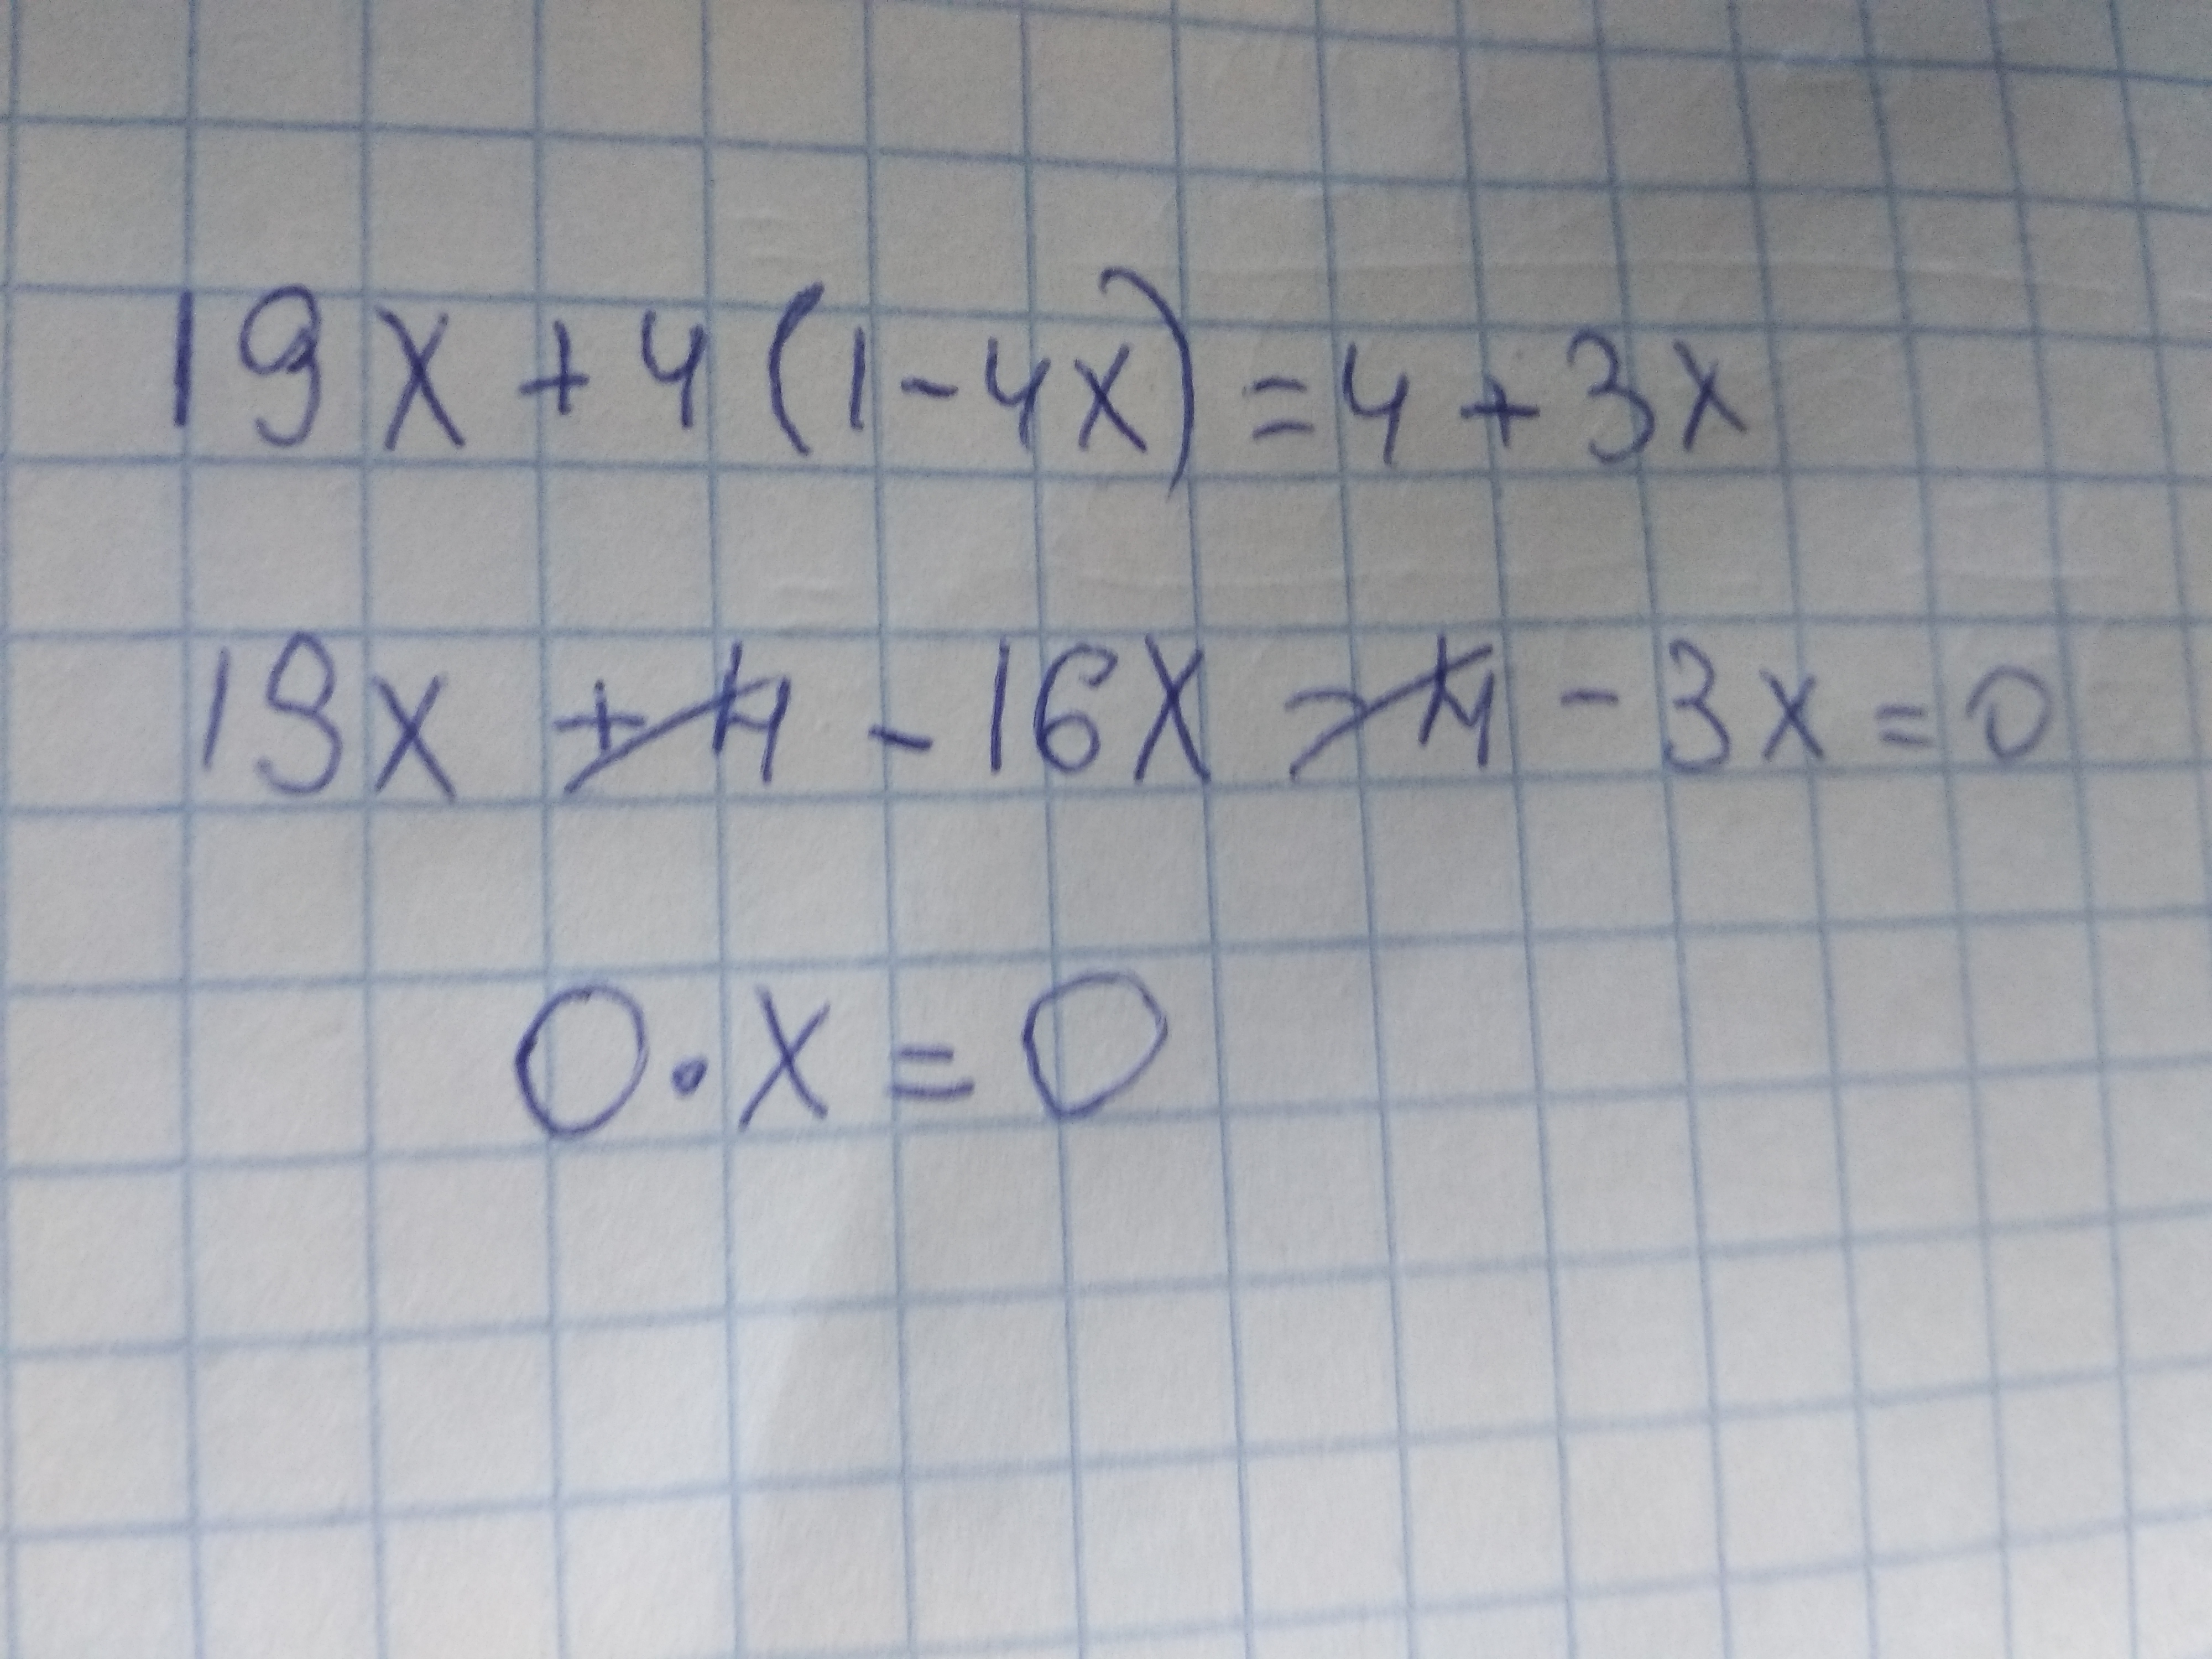 19x + 4(1 - 4x) = 4 + 3x
19x + 4 - 16x - 4 - 3x = 0
0 · x = 0